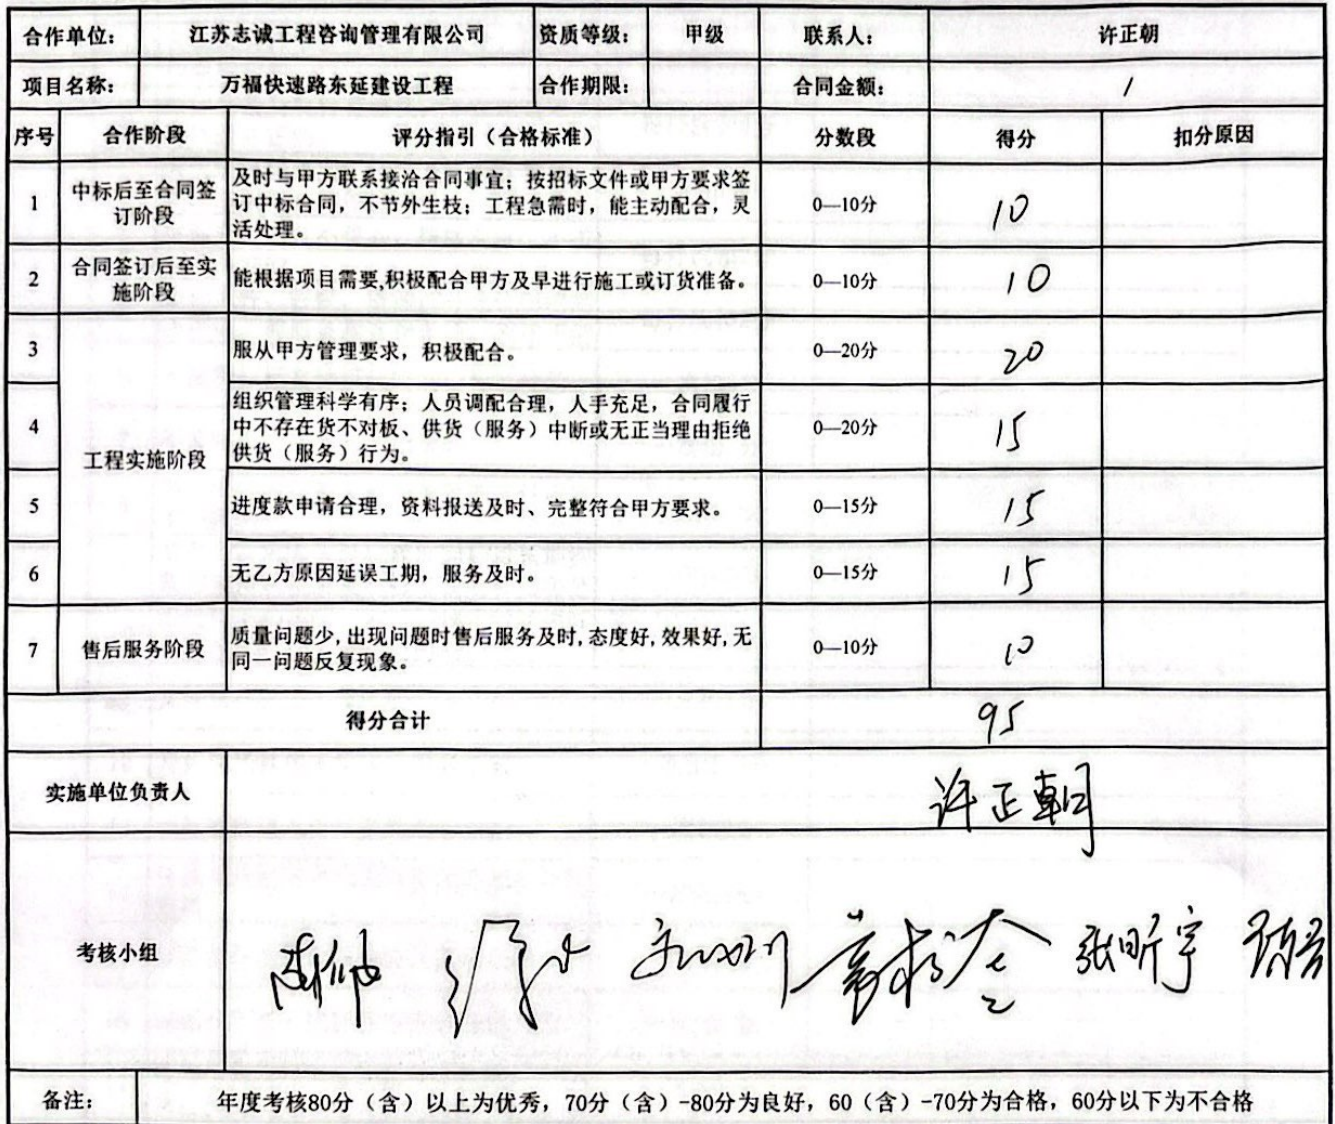 合作单位： 江苏志诚工程咨询管理有限公司 资质等级： 甲级 联系人： 许正朝
项目名称： 万福快速路东延建设工程 合作期限： 合同金额： /
序号 合作阶段 评分指引（合格标准） 分数段 得分 扣分原因
1 中标后至合同签订阶段 及时与甲方联系接洽合同事宜；按招标文件或甲方要求签
订中标合同，不节外生枝；工程急需时，能主动配合，灵
活处理。 0—10分 10
2 合同签订后至实施阶段 能根据项目需要,积极配合甲方及早进行施工或订货准备。 0—10分 10
3 服从甲方管理要求，积极配合。 0—20分 20
工程实施阶段
4 组织管理科学有序；人员调配合理，人手充足，合同履行
中不存在货不对板、供货（服务）中断或无正当理由拒绝
供货（服务）行为。 0—20分 15
5 进度款申请合理，资料报送及时、完整符合甲方要求。 0—15分 15
6 无乙方原因延误工期，服务及时。 0—15分 15
7 售后服务阶段 质量问题少,出现问题时售后服务及时,态度好,效果好,无
同一问题反复现象。 0—10分 10
得分合计 95
实施单位负责人 许正朝
考核小组 张昕宇
备注： 年度考核80分（含）以上为优秀，70分（含）-80分为良好，60（含）-70分为合格，60分以下为不合格